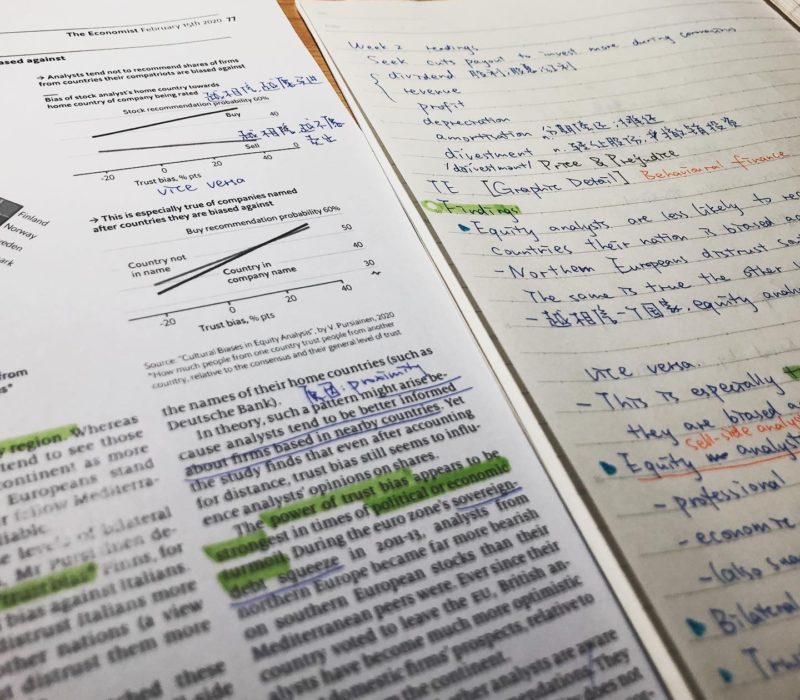 The Economist February 15th 2020 77
ased against
→ Analysts tend not to recommend shares of firms
from countries their compatriots are biased against
Bias of stock analyst's home country towards
home country of company being rated
越相信,越
Stock recommendation probability 60%
Buy
40
越相信,越不
Sell
0
-20 0 20 40
Trust bias, % pts
vice versa
→ This is especially true of companies named
after countries they are biased against
Buy recommendation probability 60%
50
Country not
in name
Country in
company name
40
30
-20 0 20 40
Trust bias, % pts
Source: "Cultural Biases in Equity Analysis", by V. Pursiainen, 2020
*How much people from one country trust people from another
country, relative to the consensus and their general level of trust
Finland
Norway
eden
ark
from
es*
y region. Whereas
tend to see those
continent as more
Europeans stand
fellow Mediterra-
liable.
levels of bilateral
Mr Pursiainen de-
trust bias". Finns, for
bias against Italians.
distrust Italians more
other nations (a view
distrust them more
ched these
the names of their home countries (such as
Deutsche Bank).
: Proximity
In theory, such a pattern might arise be-
cause analysts tend to be better informed
about firms based in nearby countries. Yet
the study finds that even after accounting
for distance, trust bias still seems to influ-
ence analysts' opinions on shares.
The power of trust bias appears to be
strongest in times of political or economic
turmoil. During the euro zone's sovereign-
debt squeeze in 2011-13, analysts from
northern Europe became far more bearish
on southern European stocks than their
Mediterranean peers were. Ever since their
country voted to leave the EU, British an-
alysts have become much more optimistic
domestic firms' prospects, relative to
the continent.
other analysts are aware
They
does not
Week 2 readings
Seek cuts payout to invest more during coronavirus
dividend 股利,股息,红利
revenue
profit
depreciation
amortisation 分期偿还,摊还
divestment n. 转让股份,
Price & Prejudice
TE [Graphic Detail] Behavioural finance
Findings
Equity analysts are less likely to re
countries their nation is biased ag
- Northern Europeans distrust so
The same is true the other
- 越相信一个国家, equity analy
vice versa.
- This is especially
they are biased ag
sell-side analys
Equity analyst
- professional
- economic
- (also sua
Bilateral
Tru